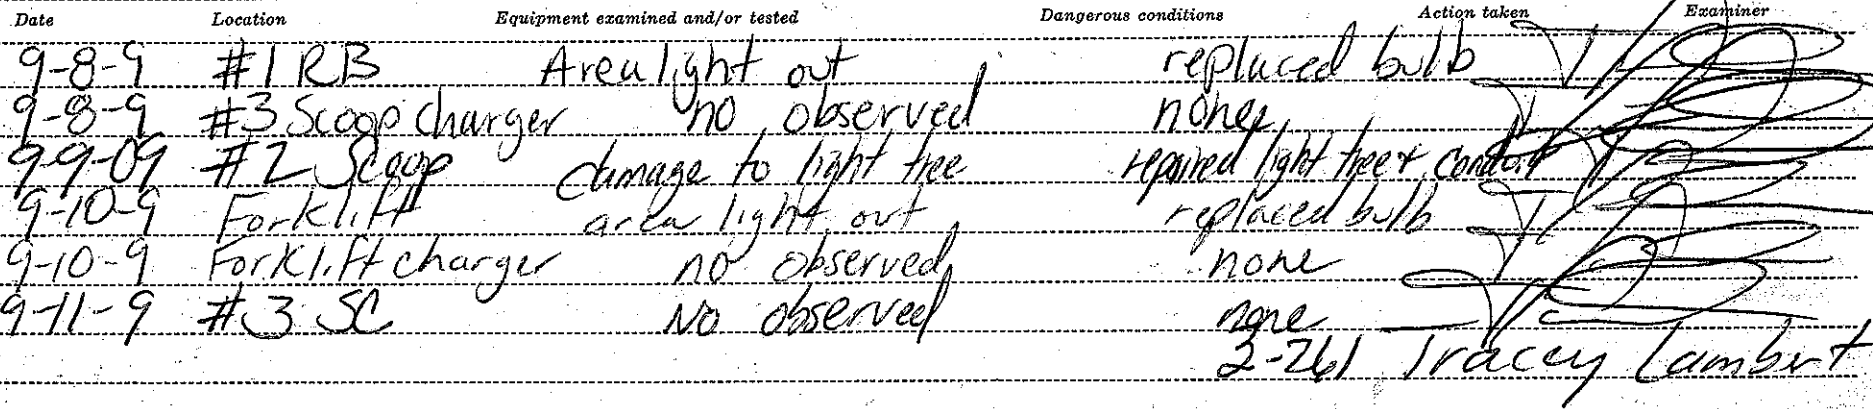 Date Location Equipment examined and/or tested Dangerous conditions Action taken Examiner
9-8-9 #1 RB Area light out replaced bulb
9-8-9 #3 Scoop charger no observed none
9-9-09 #2 Scoop damage to light tree repaired light tree + conduit
9-10-9 Forklift area light out replaced bulb
9-10-9 Forklift charger no observed none
9-11-9 #3 SC No observed none
2-261 Tracey Lambert